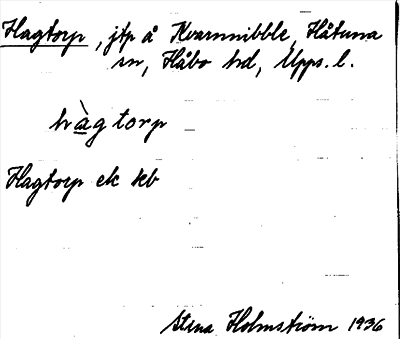 Hagtorp, jfp å Kvarnnibble, Håtuna
sn, Håbo hd, Upps. l.
hàgtorp
Hagtorp ek kb
Stina Holmström 1936